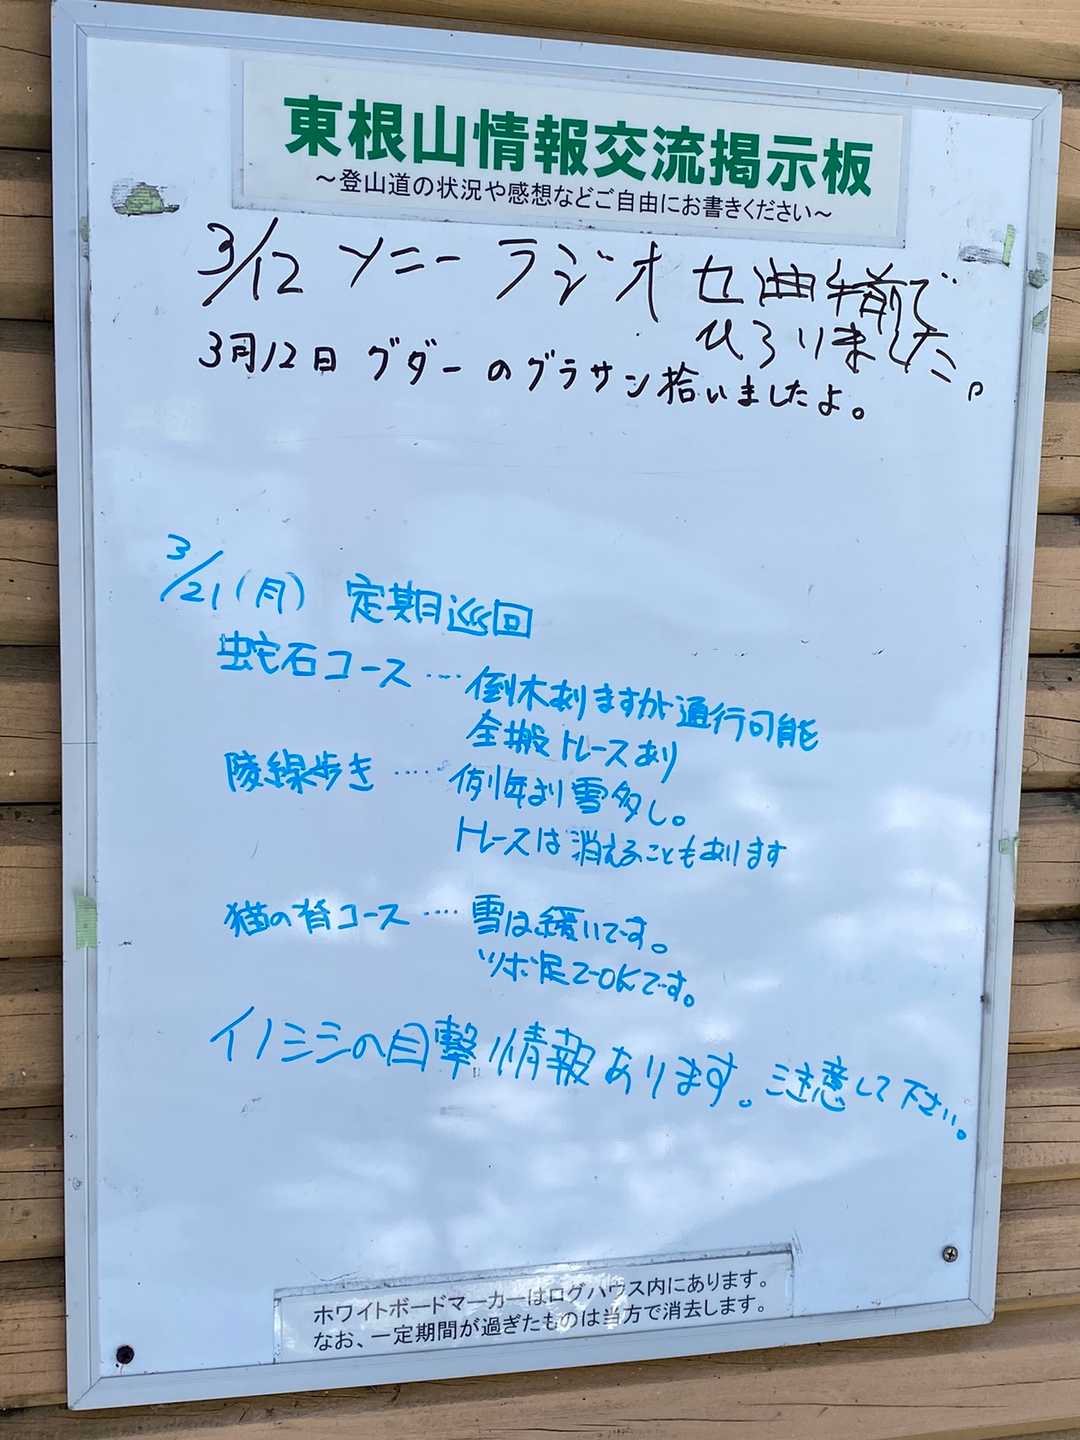 東根山情報交流掲示板
～登山道の状況や感想などご自由にお書きください～
3/12 ソニー ラジオ 七曲手前で
ひろいました。
3月12日 グダーのグラサン拾いましたよ。
3/21(月) 定期巡回
蛇石コース … 倒木ありますが通行可能
全搬トレースあり
陵線歩き …… 例年より雪多し。
トレースは消えることもあります
猫の背コース …… 雪は緩いです。
ツボ足でOKです。
イノシシの目撃情報あります。注意して下さい。
ホワイトボードマーカーはログハウス内にあります。
なお、一定期間が過ぎたものは当方で消去します。